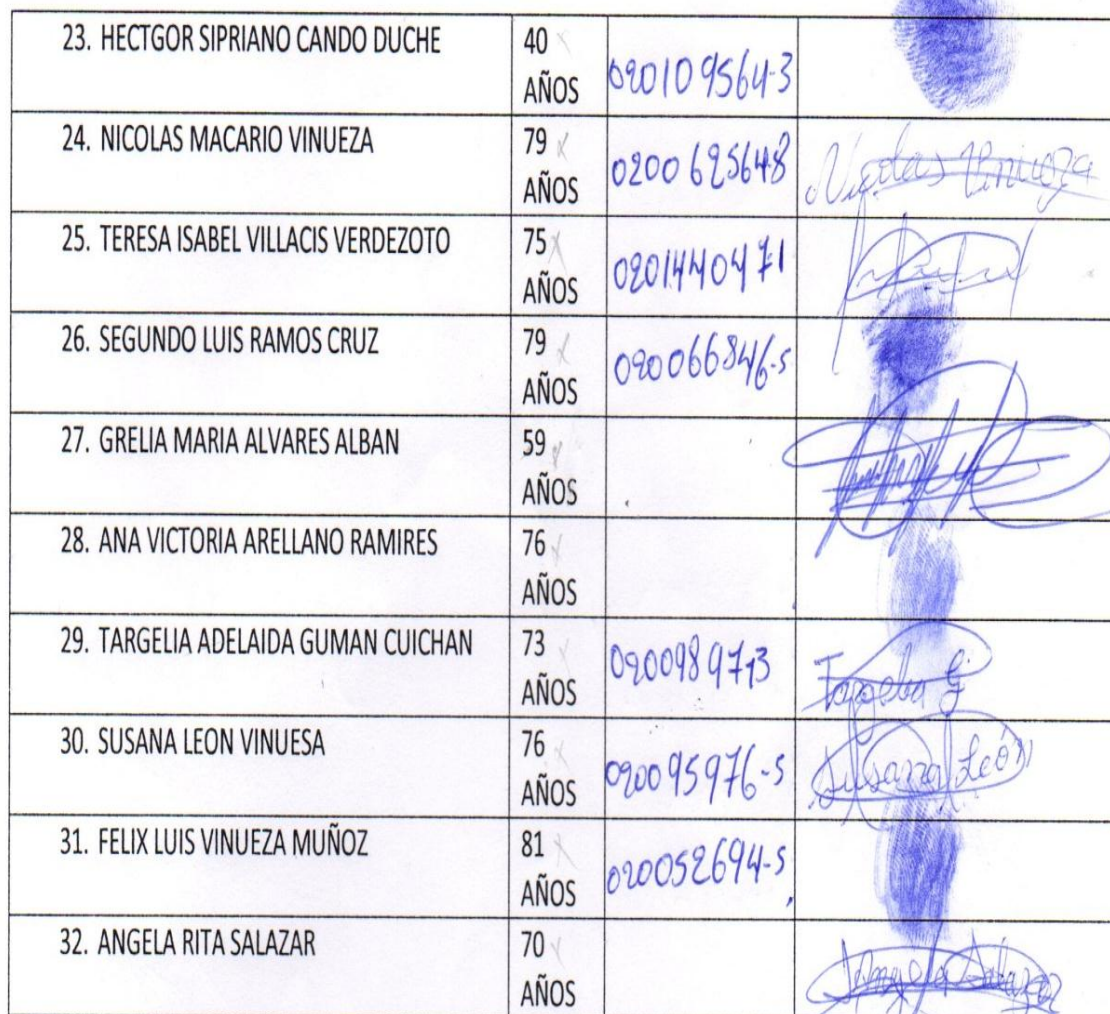 23. HECTGOR SIPRIANO CANDO DUCHE 40 AÑOS 020109564-3
24. NICOLAS MACARIO VINUEZA 79 AÑOS 0200625648 Nicolas Vinueza
25. TERESA ISABEL VILLACIS VERDEZOTO 75 AÑOS 0201440471
26. SEGUNDO LUIS RAMOS CRUZ 79 AÑOS 020066846-5
27. GRELIA MARIA ALVARES ALBAN 59 AÑOS
28. ANA VICTORIA ARELLANO RAMIRES 76 AÑOS
29. TARGELIA ADELAIDA GUMAN CUICHAN 73 AÑOS 0200989713 Targelia G
30. SUSANA LEON VINUESA 76 AÑOS 020095976-5 Susana León
31. FELIX LUIS VINUEZA MUÑOZ 81 AÑOS 020052694-5
32. ANGELA RITA SALAZAR 70 AÑOS Angela Salazar